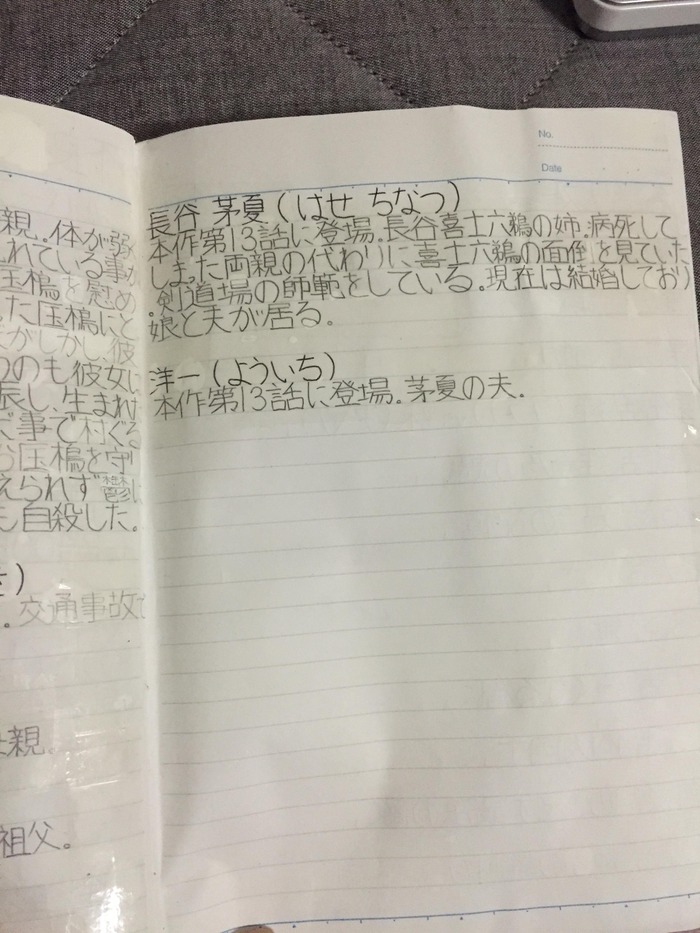 親。体が弱
れている事が
を慰め
た
しかし、彼
のも彼女に
、生まれ
事で村ぐる
を守り
えられず鬱に
自殺した。
)
。交通事故で
親。
祖父。
No.
Date
長谷 茅夏(はせ ちなつ)
本作第13話に登場。長谷喜士六鵜の姉。病死して
しまった両親の代わりに喜士六鵜の面倒を見ていた
。剣道場の師範をしている。現在は結婚しており
娘と夫が居る。
洋一(よういち)
本作第13話に登場。茅夏の夫。